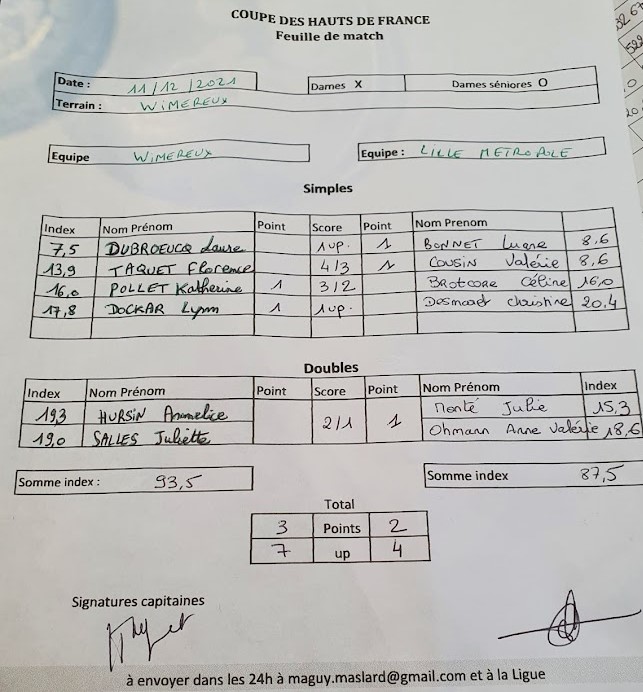 COUPE DES HAUTS DE FRANCE
Feuille de match
Date : 11/12/2021 Dames X Dames séniores O
Terrain : WIMEREUX
Equipe WIMEREUX Equipe : LILLE METROPOLE
Simples
Index Nom Prénom Point Score Point Nom Prenom
7,5 DUBROEUCQ Laure 1up. 1 BONNET 8,6
13,9 TAQUET Florence 4/3 1 COUSIN Valérie 8,6
16,0 POLLET Katherine 1 3/2 Céline 16,0
17,8 DOCKAR Lynn 1 1up. Christine 20,4
Doubles
Index Nom Prénom Point Score Point Nom Prénom Index
19,3 HURSIN 2/1 1 Monté Julie 15,3
19,0 SALLES Juliette Ohmann Anne Valérie 18,6
Somme index : 93,5 Somme index 87,5
Total
3 Points 2
7 up 4
Signatures capitaines
à envoyer dans les 24h à maguy.maslard@gmail.com et à la Ligue